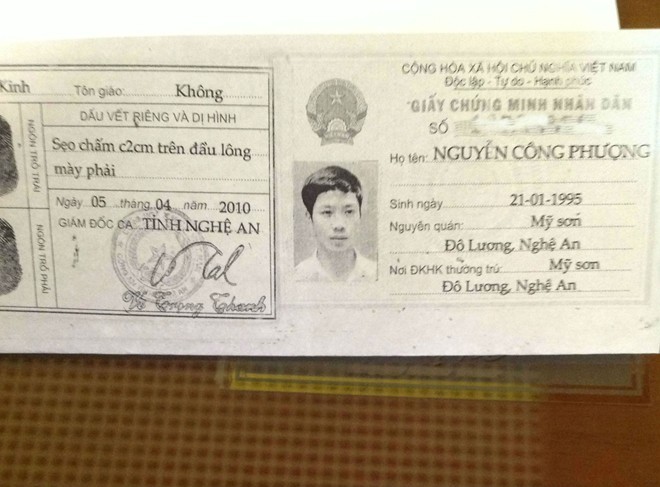 Kinh Tôn giáo: Không
DẤU VẾT RIÊNG VÀ DỊ HÌNH
Sẹo chấm c2cm trên đầu lông
mày phải
Ngày 05 tháng 04 năm 2010
GIÁM ĐỐC CA: TỈNH NGHỆ AN
NGÓN TRỎ TRÁI
NGÓN TRỎ PHẢI
CỘNG HÒA XÃ HỘI CHỦ NGHĨA VIỆT NAM
Độc lập - Tự do - Hạnh phúc
GIẤY CHỨNG MINH NHÂN DÂN
SỐ
Họ tên: NGUYỄN CÔNG PHƯỢNG
Sinh ngày 21-01-1995
Nguyên quán: Mỹ sơn
Đô Lương, Nghệ An
Nơi ĐKHK thường trú: Mỹ sơn
Đô Lương, Nghệ An